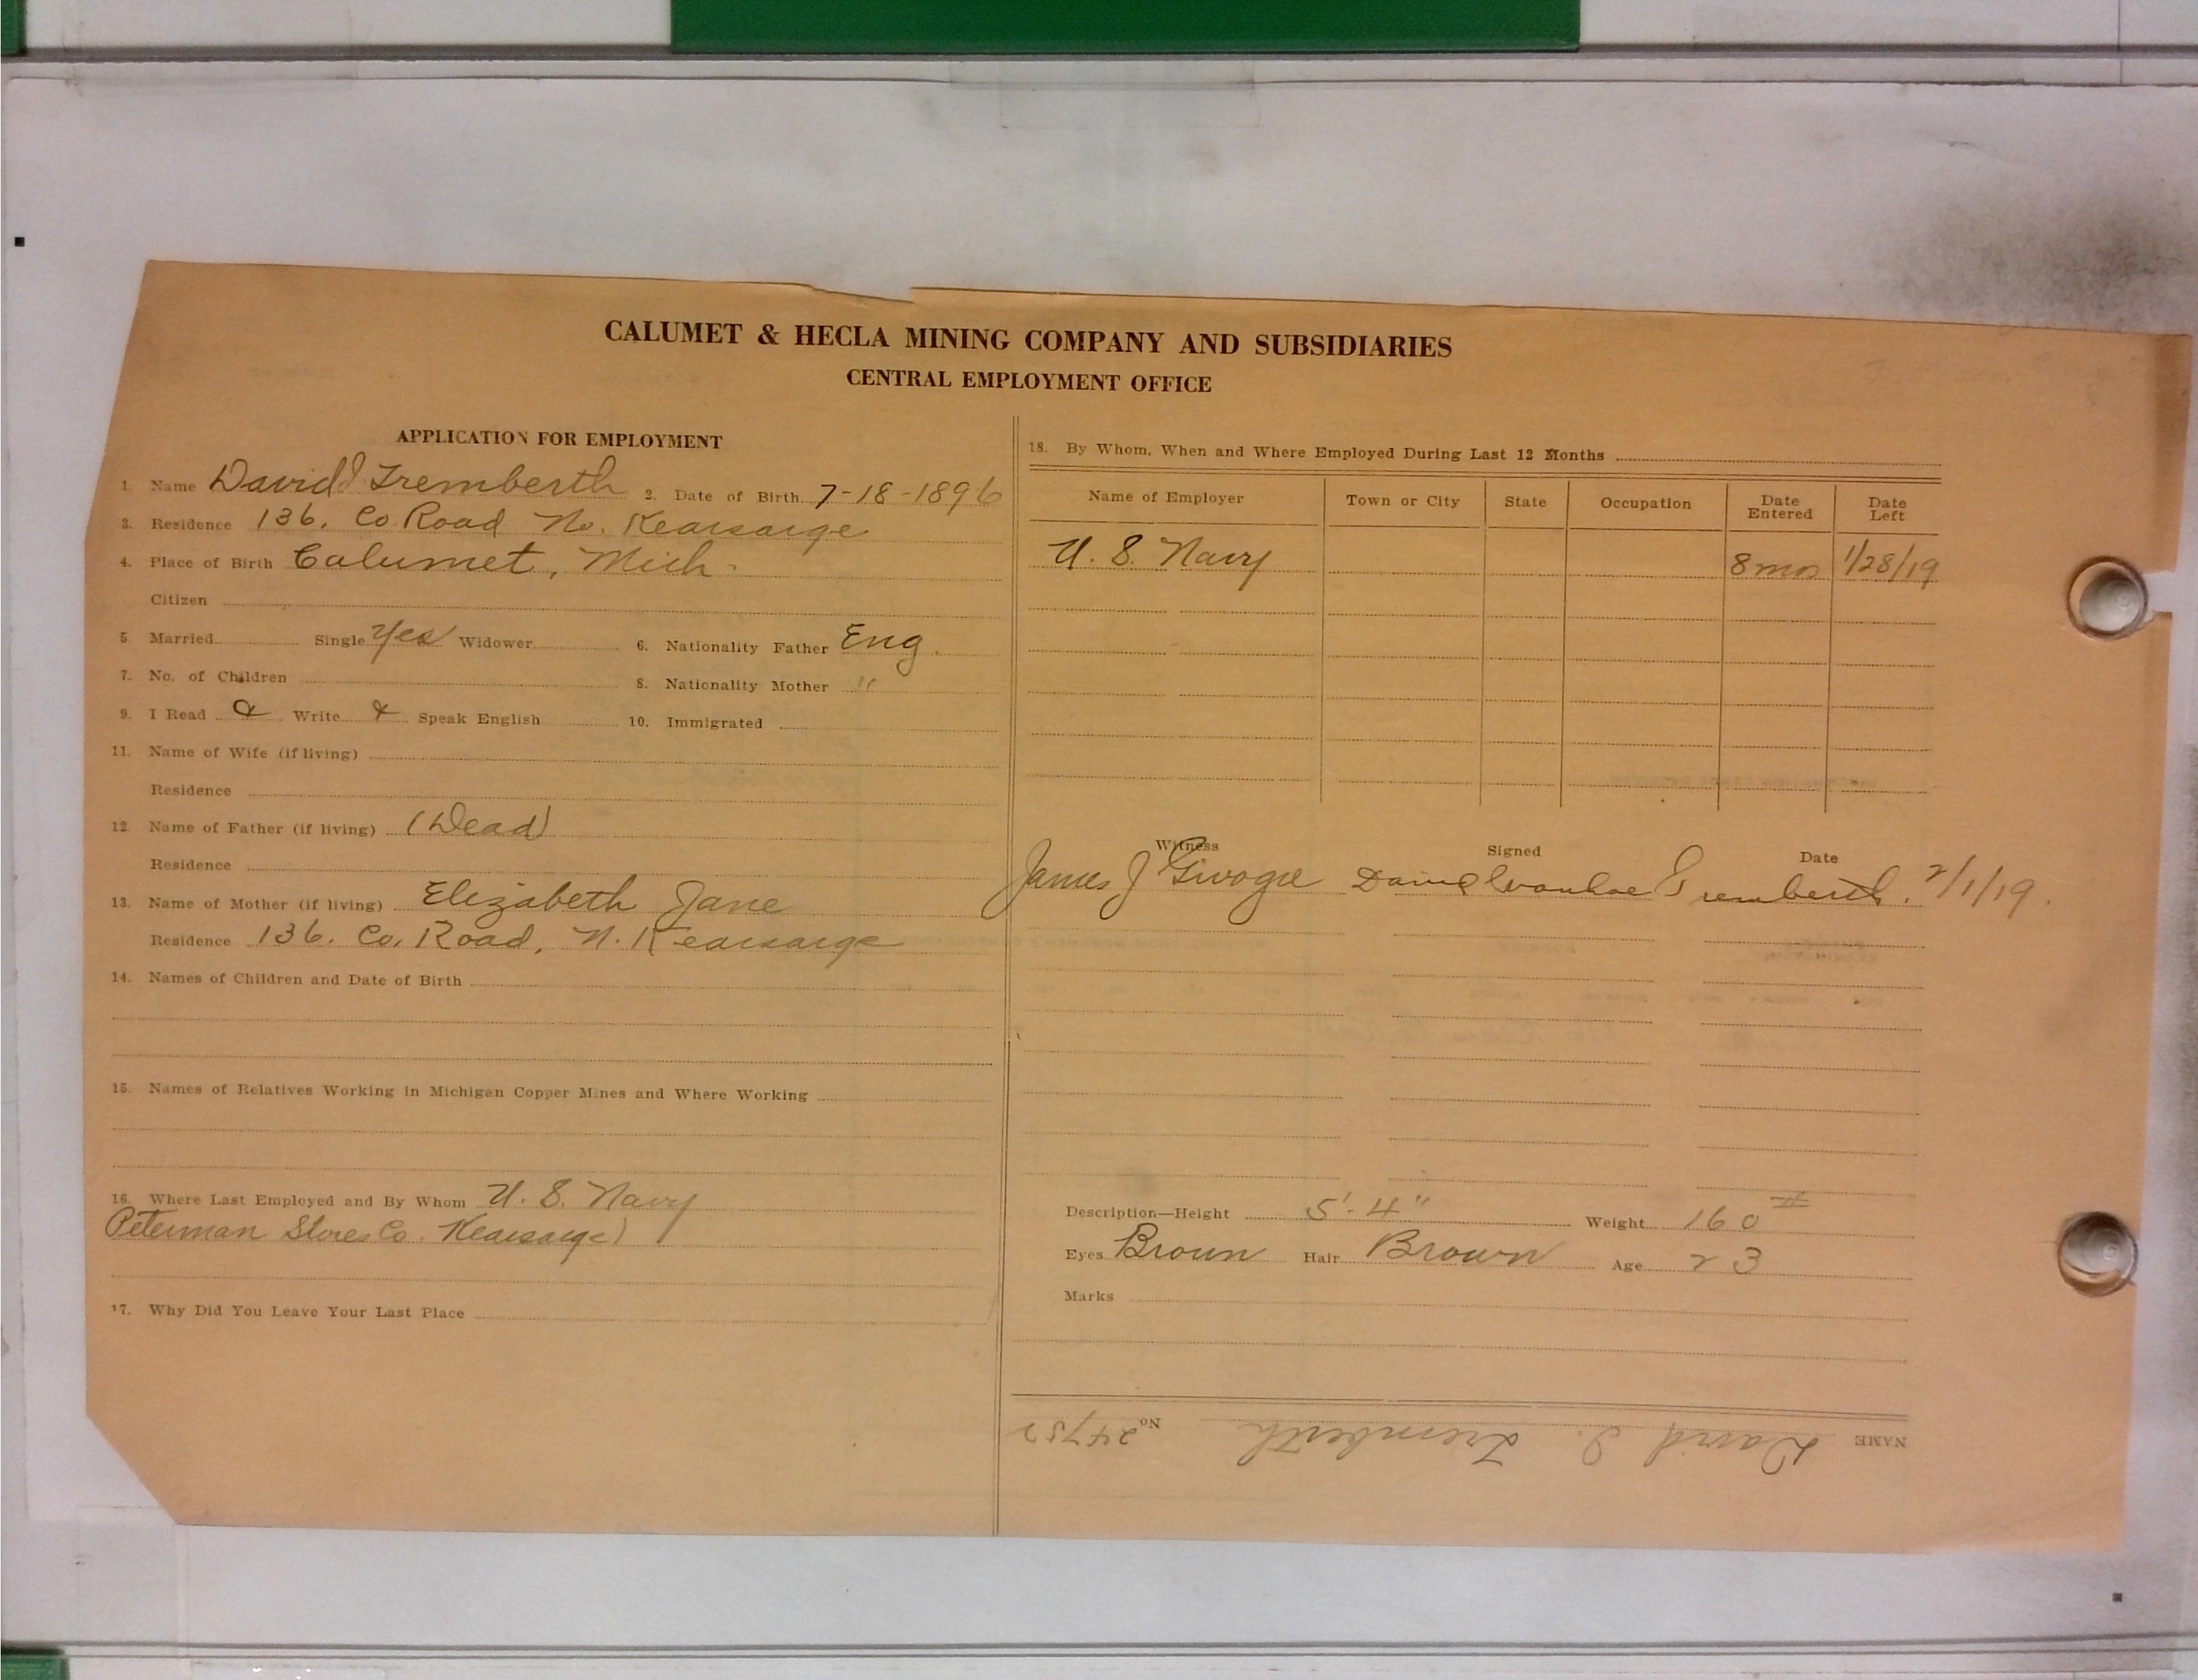 CALUMET & HECLA MINING COMPANY AND SUBSIDIARIES
CENTRAL EMPLOYMENT OFFICE
APPLICATION FOR EMPLOYMENT
1. Name David I. Tremberth 2. Date of Birth 7-18-1896
3. Residence 136. Co. Road No. Kearsarge
4. Place of Birth Calumet, Mich.
Citizen
5. Married Single Yes Widower 6. Nationality Father Eng.
7. No. of Children 8. Nationality Mother "
9. I Read & Write & Speak English 10. Immigrated
11. Name of Wife (if living)
Residence
12. Name of Father (if living) (Dead)
Residence
13. Name of Mother (if living) Elizabeth Jane
Residence 136. Co. Road, N. Kearsarge
14. Names of Children and Date of Birth
15. Names of Relatives Working in Michigan Copper Mines and Where Working
16. Where Last Employed and By Whom U. S. Navy
Peterman Stores Co. Kearsarge)
17. Why Did You Leave Your Last Place
18. By Whom, When and Where Employed During Last 12 Months
Name of Employer Town or City State Occupation Date Entered Date Left
U. S. Navy 8 mos 1/28/19
Witness Signed Date
James J David Ivanhoe Tremberth. 2/1/19.
Description—Height 5'-4" Weight 160 #
Eyes Brown Hair Brown Age 23
Marks
NAME David I. Tremberth No. 24752